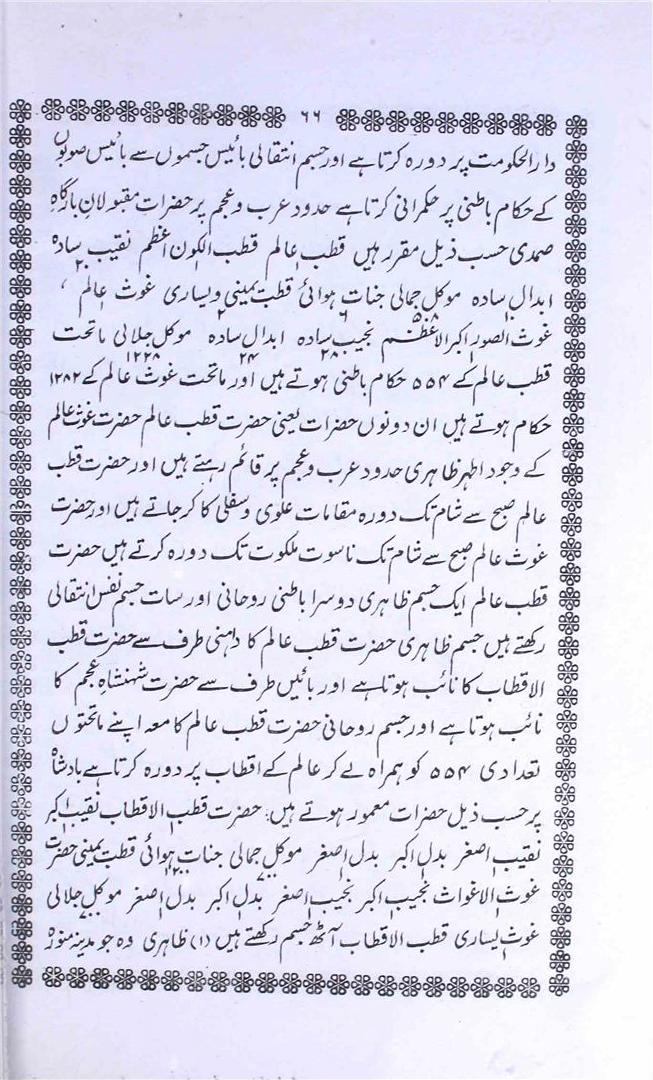 ۶۶
دارالحکومت پر دورہ کرتا ہے اور جسم انتقالی بائیس جسموں سے بائیس صوبوں
کے حکام باطنی پر حکمرانی کرتا ہے حدود عرب و عجم پر حضرات مقبولان بارگاہِ
صمدی حسب ذیل مقرر ہیں قطب عالم قطب الکون اعظم نقیب سادہ
ابدال سادہ موکل جمالی جنات ہوائی قطب یمینی و یساری غوث عالم ،
غوث الصور اکبر الاعظم نجیب سادہ ابدال سادہ موکل جلالی ماتحت
قطب عالم کے ۵۵۴ حکام باطنی ہوتے ہیں اور ماتحت غوث عالم کے ۱۲۸۲
حکام ہوتے ہیں ان دونوں حضرات یعنی حضرت قطب عالم حضرت غوث عالم
کے وجود اطہر ظاہری حدود عرب و عجم پر قائم رہتے ہیں اور حضرت قطب
عالم صبح سے شام تک دورہ مقامات علوی و سفلی کا کر جاتے ہیں اور حضرت
غوث عالم صبح سے شام تک ناسوت ملکوت تک دورہ کرتے ہیں حضرت
قطب عالم ایک جسم ظاہری دوسرا باطنی روحانی اور سات جسم نفس انتقالی
رکھتے ہیں جسم ظاہری حضرت قطب عالم کا داہنی طرف سے حضرت قطب
الاقطاب کا نائب ہوتا ہے اور بائیں طرف سے حضرت شہنشاہِ عجم کا
نائب ہوتا ہے اور جسم روحانی حضرت قطب عالم کا معہ اپنے ماتحتوں
تعدادی ۵۵۴ کو ہمراہ لے کر عالم کے اقطاب پر دورہ کرتا ہے بادشاہ
پر حسب ذیل حضرات معمور ہوتے ہیں: حضرت قطب الاقطاب نقیب اکبر
نقیب اصغر بدل اکبر بدل اصغر موکل جمالی جنات ہوائی قطب یمینی حضرت
غوث الاغواث نجیب اکبر نجیب اصغر بدل اکبر بدل اصغر موکل جلالی
غوث یساری قطب الاقطاب آٹھ جسم رکھتے ہیں (۱) ظاہری وہ جو مدینہ منورہ